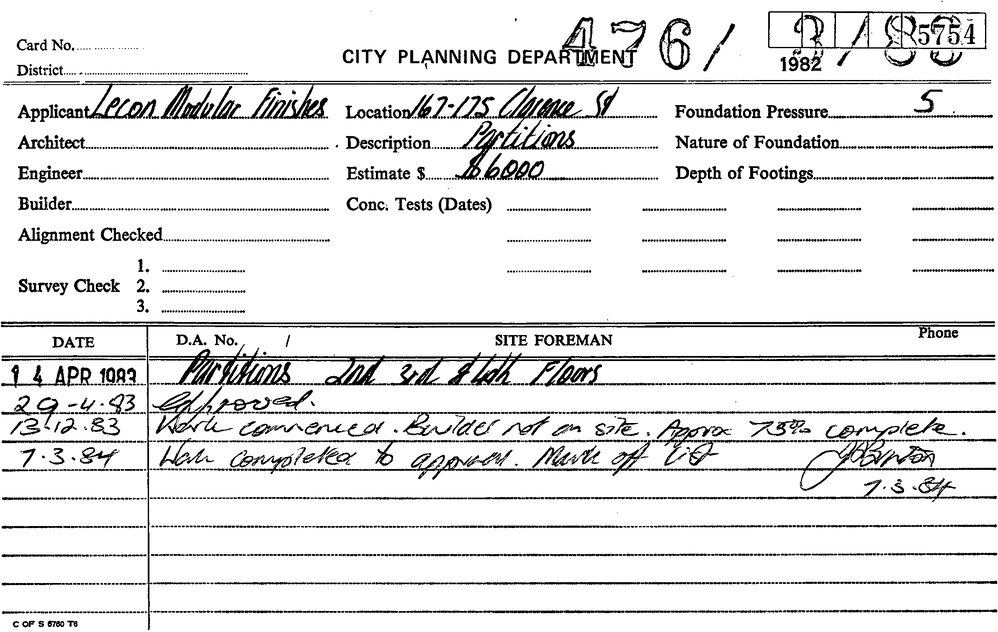 Card No.
476/ 3/83 5754
1982
CITY PLANNING DEPARTMENT
District
Applicant Lecon Modular Finishes Location 167-175 Clarence St Foundation Pressure 5
Architect Description Partitions Nature of Foundation
Engineer Estimate $ $6000 Depth of Footings
Builder Conc. Tests (Dates)
Alignment Checked
1.
Survey Check 2.
3.
DATE D.A. No. / SITE FOREMAN Phone
14 APR 1983 Partitions 2nd 3rd & 4th Floors
29-4.83 Approved.
13.12.83 Work commenced. Builder not on site. Approx 75% complete.
7.3.84 Work completed to approval. Mark off list
7.3.84
C OF S 5760 T6